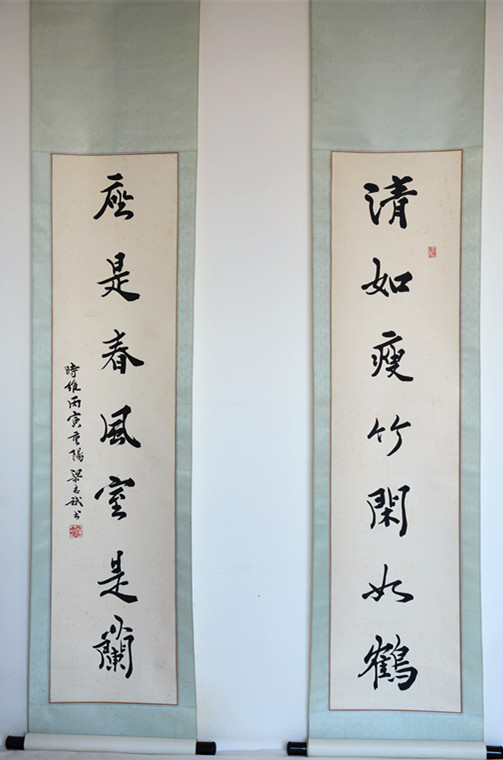 清如瘦竹閑如鶴
座是春風室是蘭
時維丙寅重陽 梁志斌書